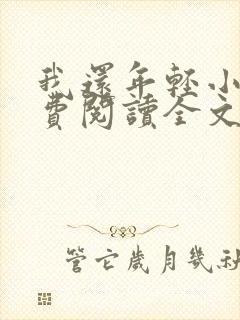 我還年輕小
費閱讀全文
管它歲月幾